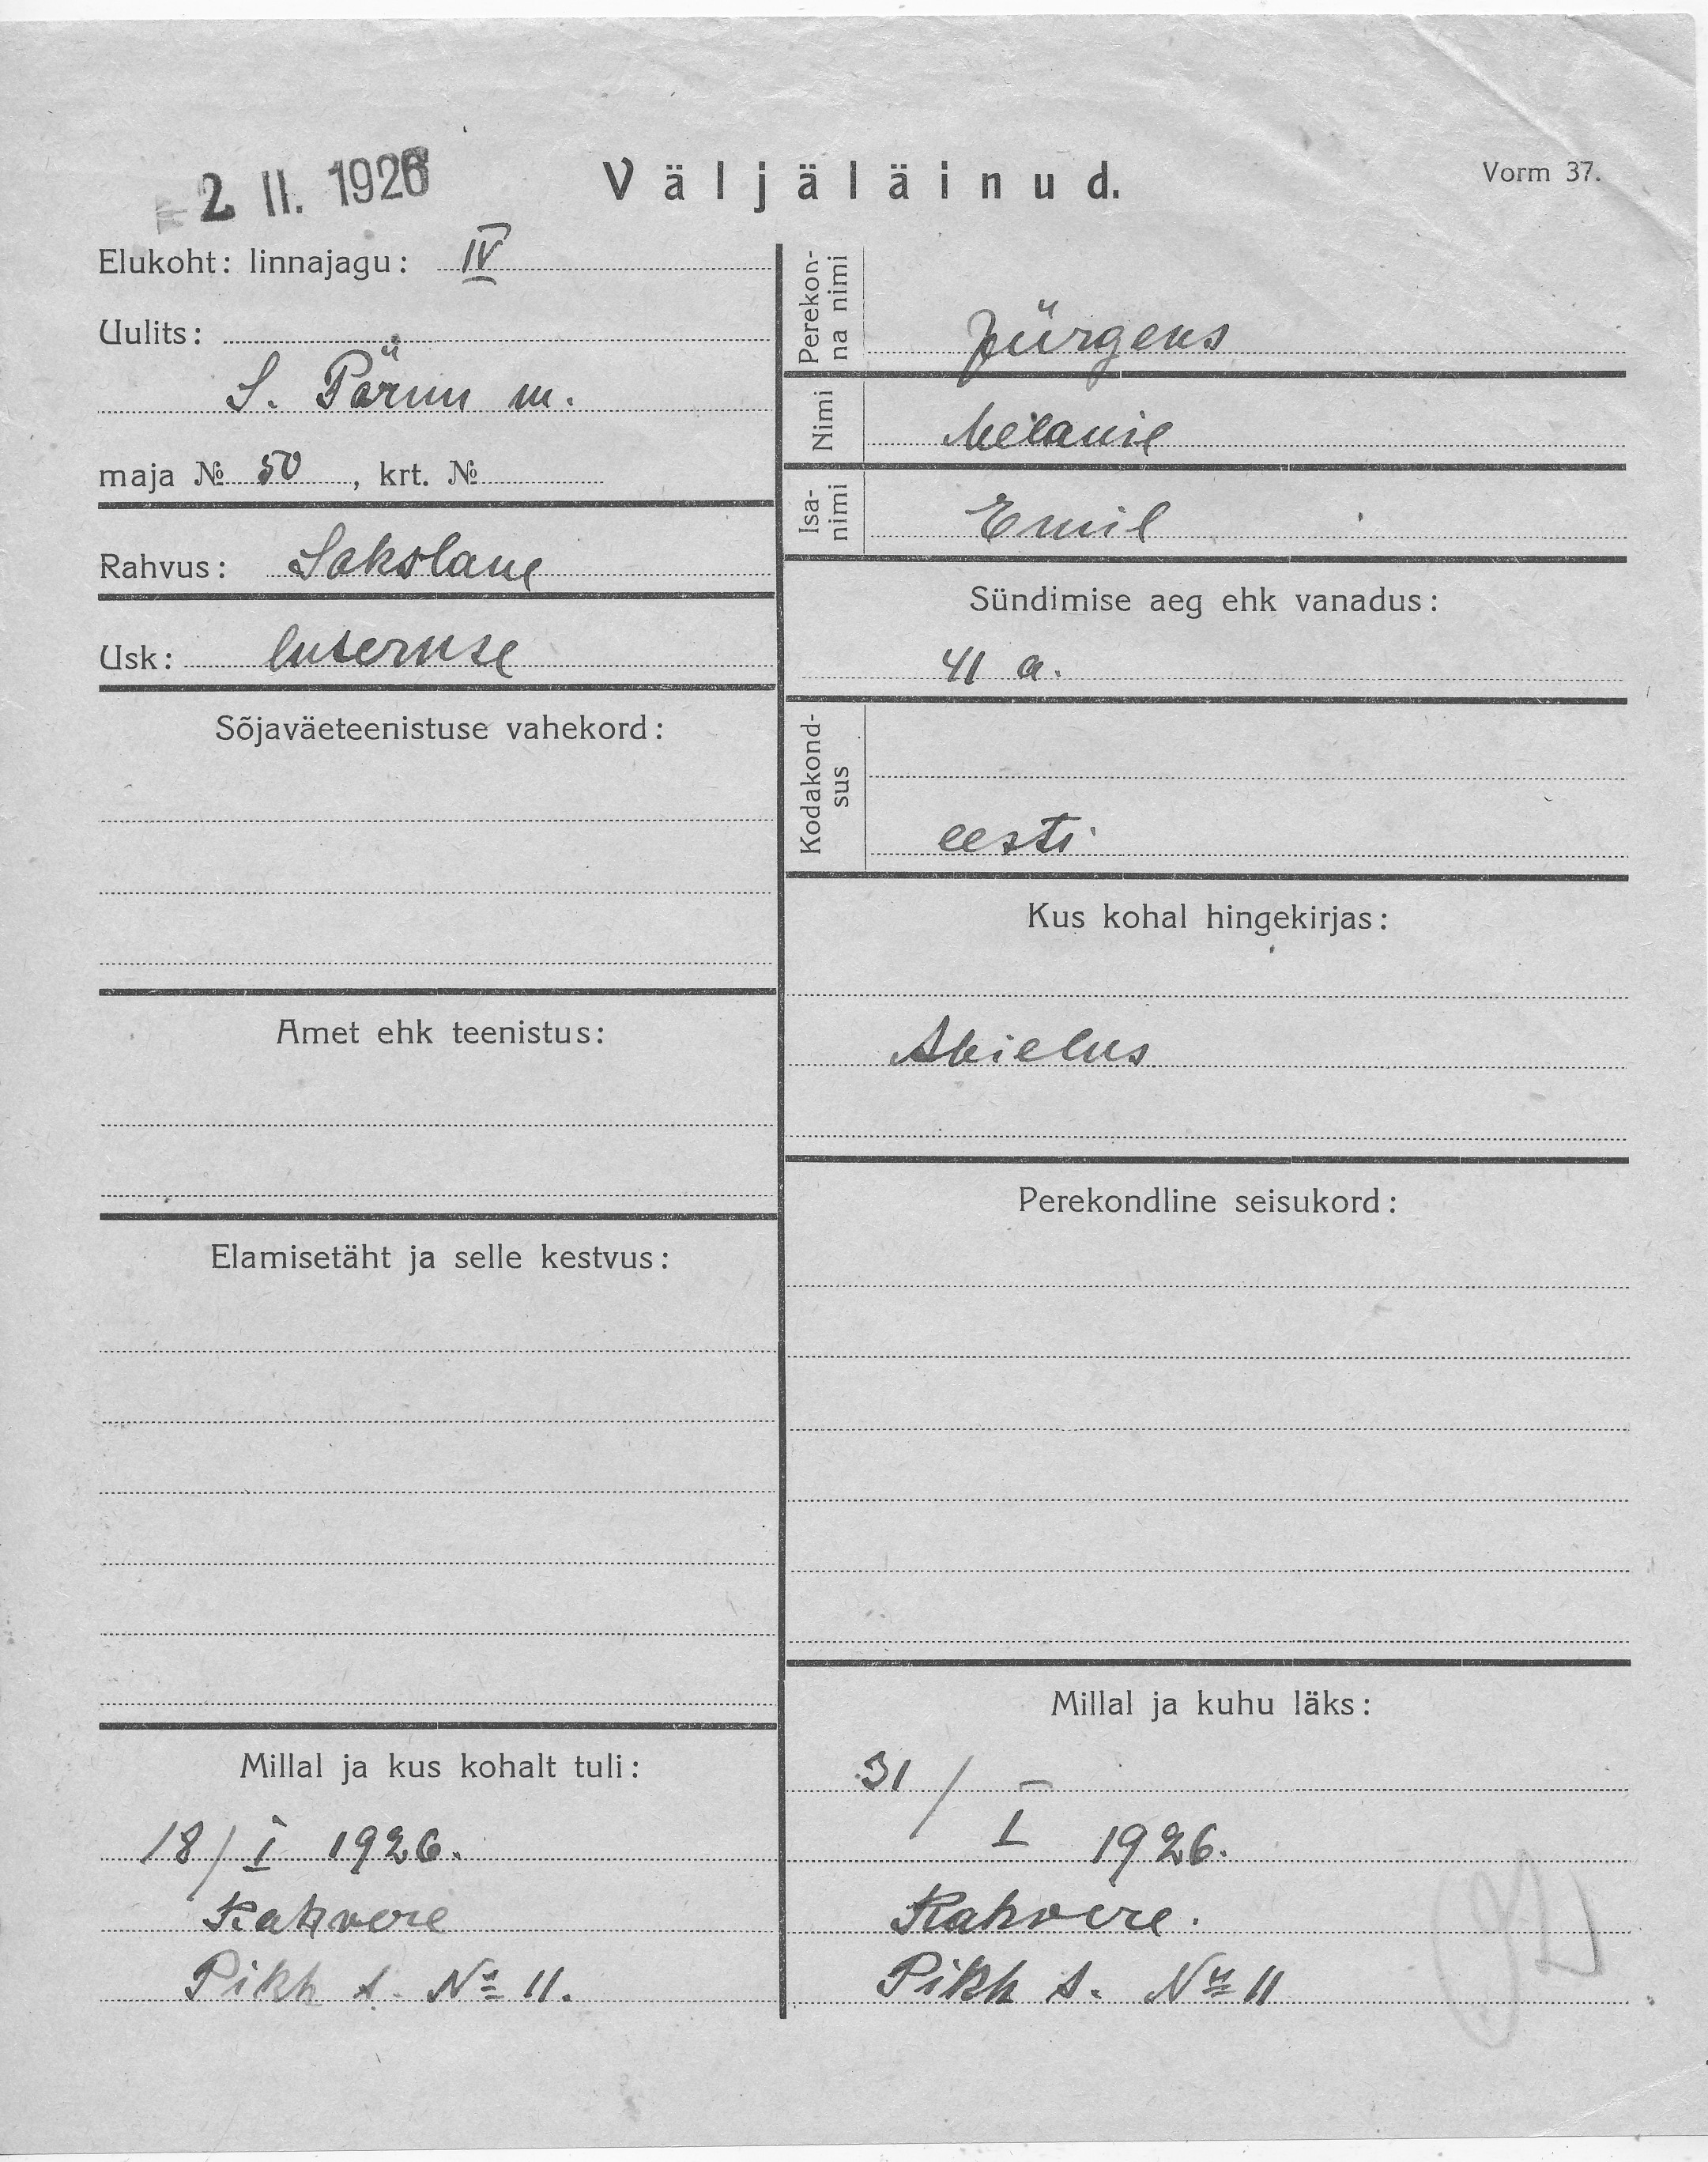 2 II. 1926
Väljäläinud.
Vorm 37.
Elukoht: linnajagu: IV
Uulits:
S. Pärnu m.
maja № 50, krt. №
Rahvus: Sakslane
Usk: luteruse
Sõjaväeteenistuse vahekord:
Amet ehk teenistus:
Elamisetäht ja selle kestvus:
Millal ja kus kohalt tuli:
18/I 1926.
Rakvere
Pikk t. № 11.
Perekon-
na nimi
Jürgens
Nimi
Melanie
Isa-
nimi
Emil
Sündimise aeg ehk vanadus:
41 a.
Kodakond-
sus
eesti
Kus kohal hingekirjas:
Abielus
Perekondline seisukord:
Millal ja kuhu läks:
31/I 1926.
Rakvere.
Pikk t. № 11